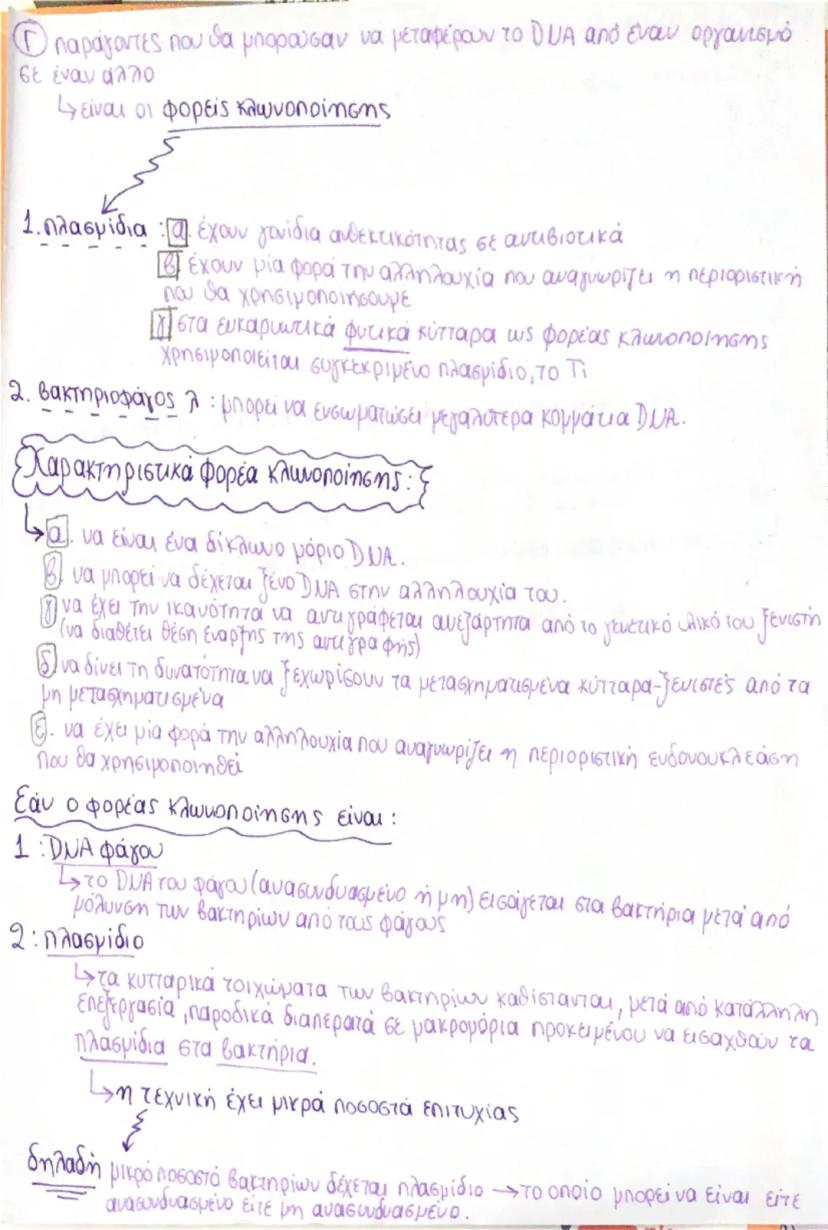 Γ παράγοντες που θα μπορούσαν να μεταφέρουν το DNA από έναν οργανισμό
σε έναν άλλο
↳ είναι οι φορείς κλωνοποίησης
1. πλασμίδια : α έχουν γονίδια ανθεκτικότητας σε αντιβιοτικά
β έχουν μία φορά την αλληλουχία που αναγνωρίζει η περιοριστική
που θα χρησιμοποιήσουμε
γ στα ευκαρυωτικά φυτικά κύτταρα ως φορέας κλωνοποίησης
χρησιμοποιείται συγκεκριμένο πλασμίδιο, το Ti
2. βακτηριοφάγος λ : μπορεί να ενσωματώσει μεγαλύτερα κομμάτια DNA.
Χαρακτηριστικά φορέα κλωνοποίησης :
↳ α. να είναι ένα δίκλωνο μόριο DNA.
β να μπορεί να δέχεται ξένο DNA στην αλληλουχία του.
γ να έχει την ικανότητα να αντιγράφεται ανεξάρτητα από το γενετικό υλικό του ξενιστή
(να διαθέτει θέση έναρξης της αντιγραφής)
δ να δίνει τη δυνατότητα να ξεχωρίσουν τα μετασχηματισμένα κύτταρα-ξενιστές από τα
μη μετασχηματισμένα
ε. να έχει μία φορά την αλληλουχία που αναγνωρίζει η περιοριστική ενδονουκλεάση
που θα χρησιμοποιηθεί
Εάν ο φορέας κλωνοποίησης είναι :
1 : DNA φάγου
↳ το DNA του φάγου (ανασυνδυασμένο ή μη) εισάγεται στα βακτήρια μετά από
μόλυνση των βακτηρίων από τους φάγους
2 : πλασμίδιο
↳ τα κυτταρικά τοιχώματα των βακτηρίων καθίστανται, μετά από κατάλληλη
επεξεργασία, παροδικά διαπερατά σε μακρομόρια προκειμένου να εισαχθούν τα
πλασμίδια στα βακτήρια.
↳ η τεχνική έχει μικρά ποσοστά επιτυχίας
δηλαδή μικρό ποσοστό βακτηρίων δέχεται πλασμίδιο → το οποίο μπορεί να είναι είτε
ανασυνδυασμένο είτε μη ανασυνδυασμένο.